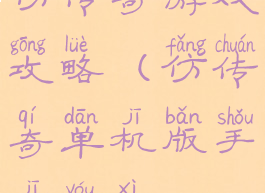 gōng lüè fǎng chuán
攻略（仿传
qí dān jī bǎn shǒu
奇单机版手
jī yóu xì